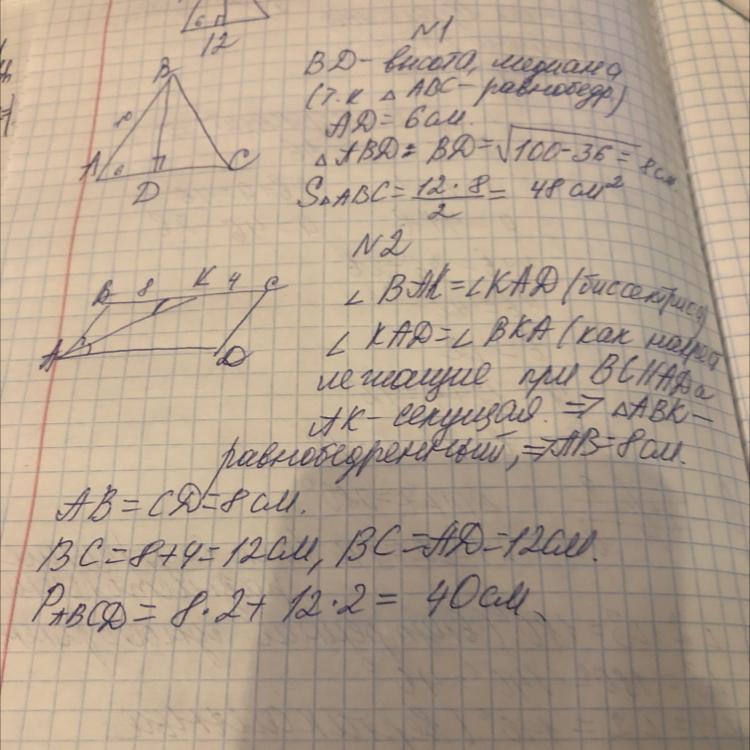 12
N1
BD - высота, медиана
(т.к △ABC - равнобедр.)
AD = 6 см.
△ABD: BD = √100-36 = 8 см.
S△ABC = 12·8/2 = 48 см²
B
10
A 6 C
D
N2
B 8 K 4 C
A D
∠ BAK = ∠KAD (биссектриса)
∠ KAD = ∠ BKA (как накрест
лежащие при BC||AD и
AK - секущая. ⇒ △ABK -
равнобедренный, ⇒ AB = 8 см.
AB = CD = 8 см.
BC = 8+4 = 12 см, BC = AD = 12 см.
P ABCD = 8·2 + 12·2 = 40 см.